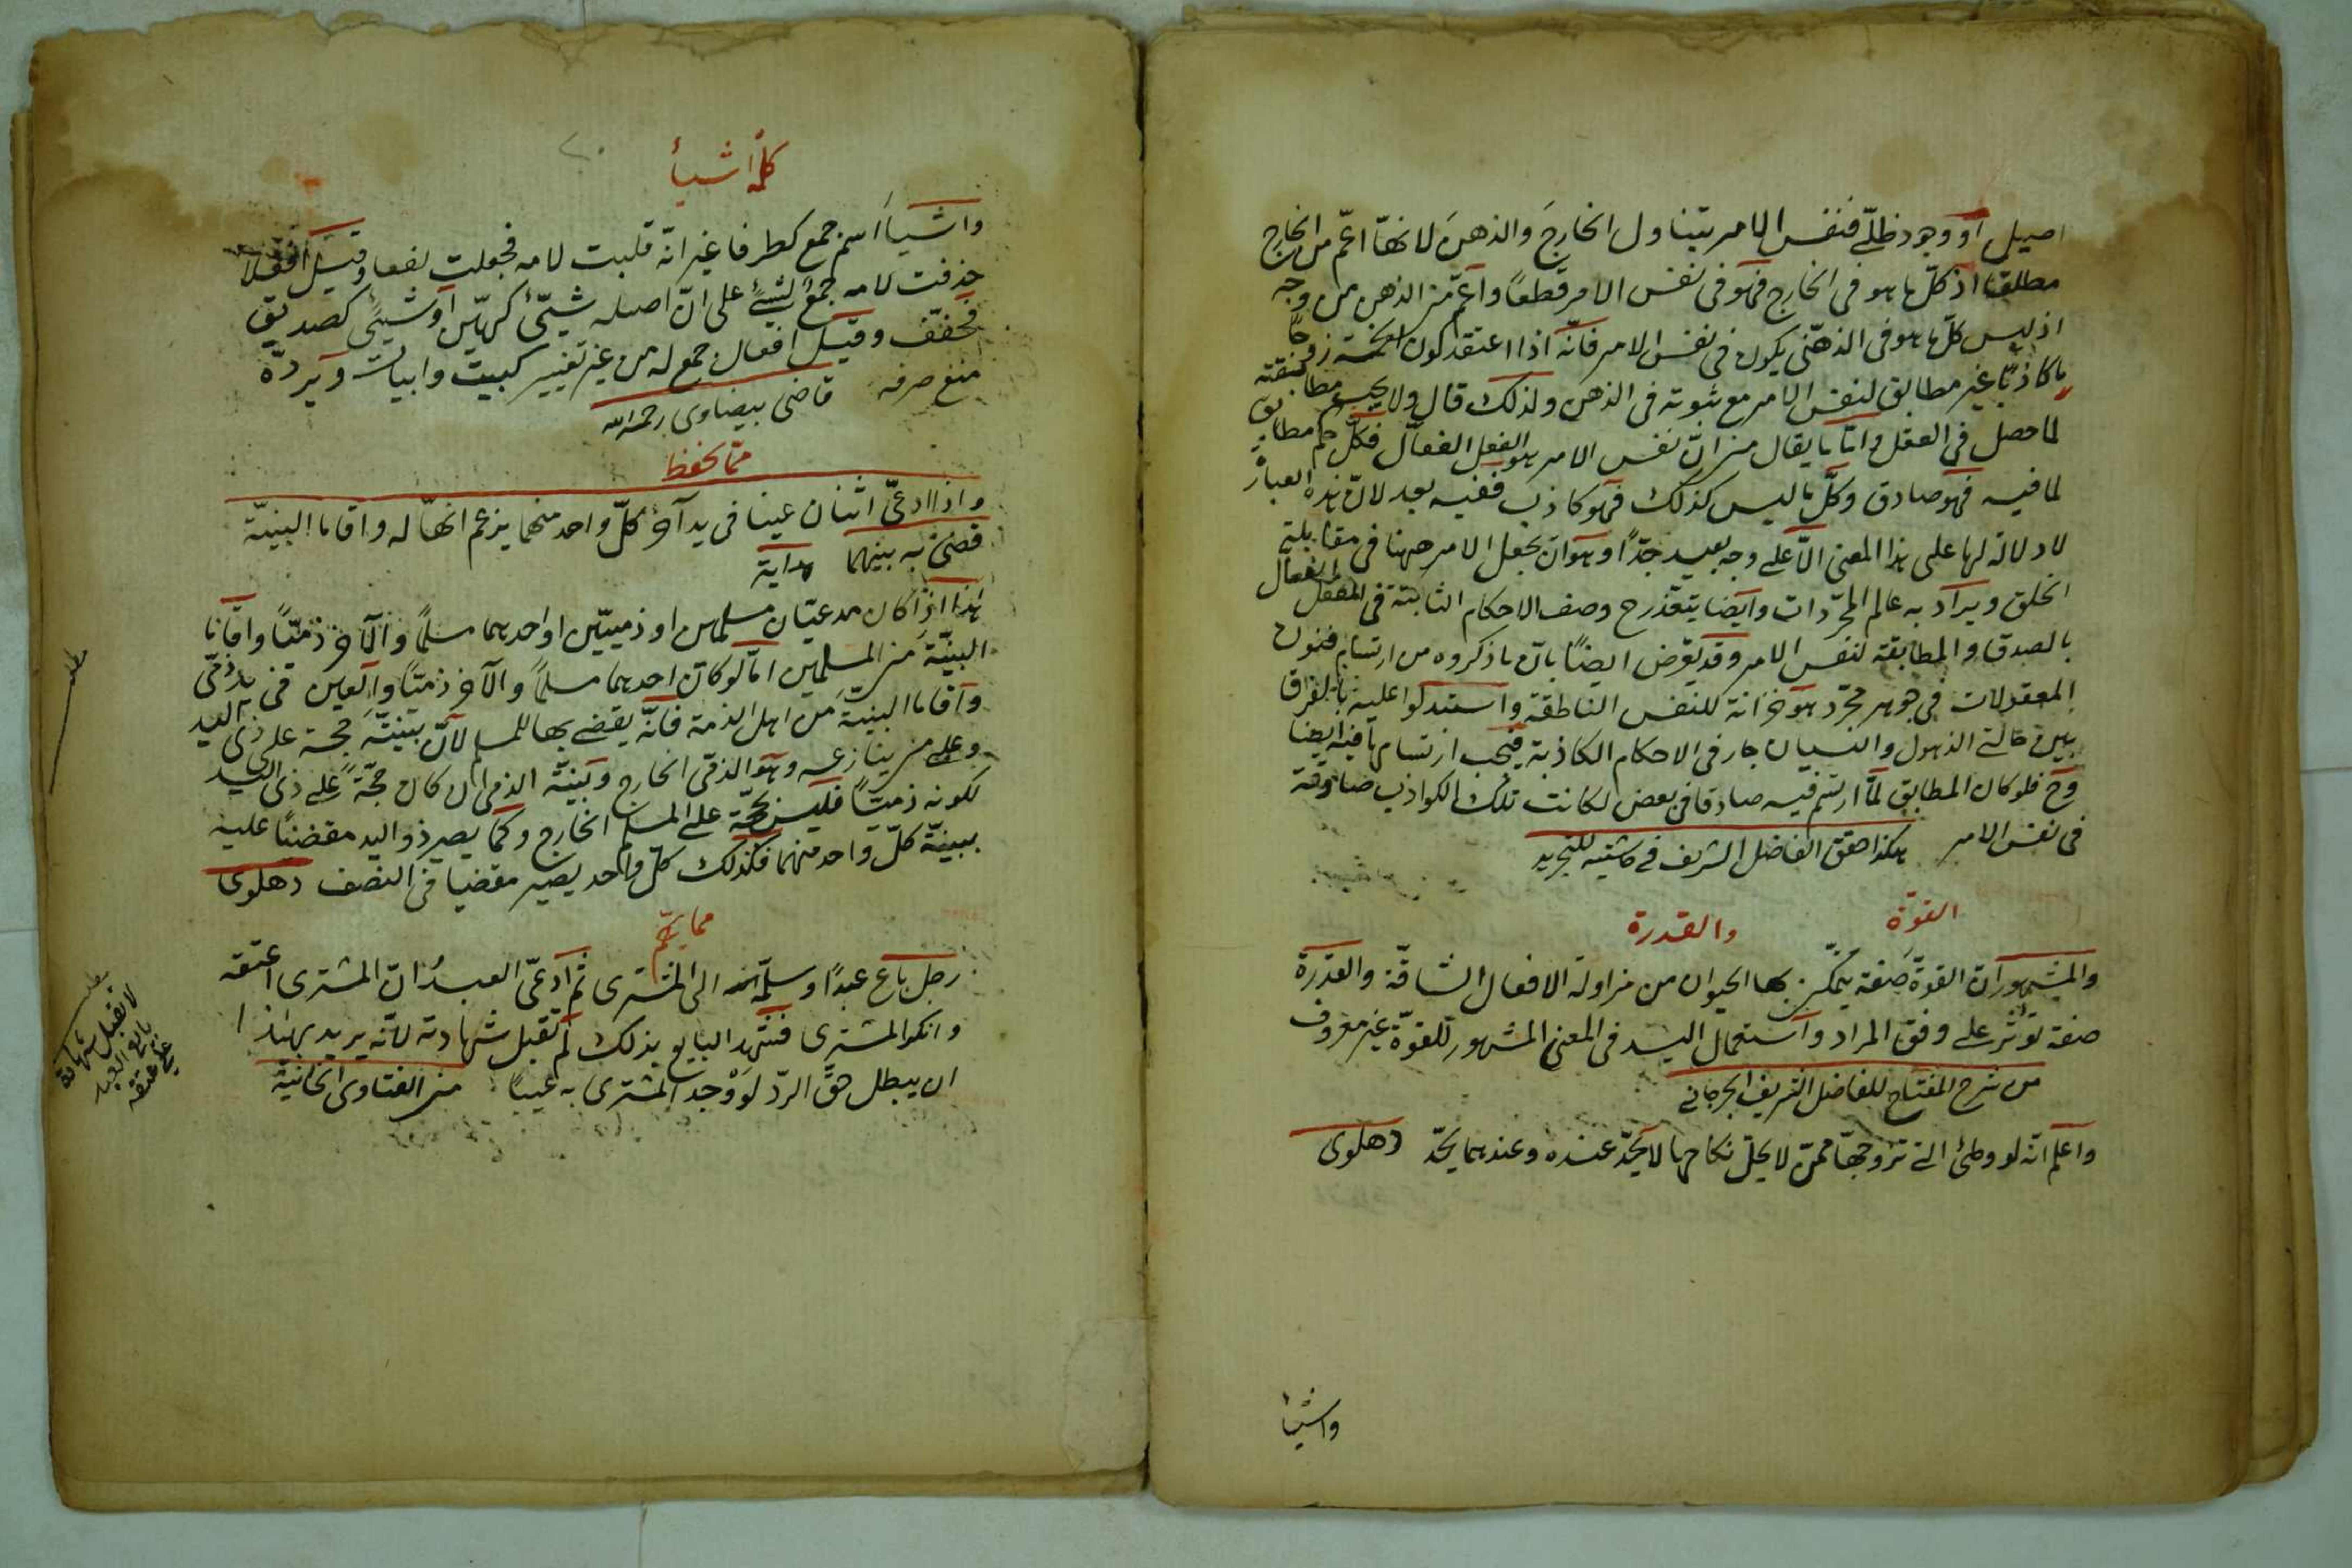 اصيل او وجود ظلّى فنفس الامر يتناول الخارج والذهن لانها اعمّ من الخارج
مطلقا اذ كلّ ما هو فى الخارج فهو فى نفس الامر قطعًا واعمّ من الذهن من وجه
اذ ليس كلّ ما هو فى الذهن يكون فى نفس الامر فانّه اذا اعتقد كون الخمسة زوجًا
كاذبًا غير مطابق لنفس الامر مع ثبوته فى الذهن ولذلك قال ولا يجب مطابقته
لما حصل فى العقل وامّا ما يقال من انّ نفس الامر هو العقل الفعّال فكلّ حكم مطابق
لما فيه فهو صادق وكلّ ما ليس كذلك فهو كاذب ففيه بعد لانّ هذه العبارة
لا دلالة لها على هذا المعنى الّا على وجه بعيد جدّا وهو ان يجعل الامر ههنا فى مقابلة
الخلق ويراد به عالم المجرّدات وايضا يتعذر ح وصف الاحكام الثابتة فى العقل الفعال
بالصدق والمطابقة لنفس الامر وقد يعرض ايضًا بانّ ما ذكروه من ارتسام
المعقولات فى جوهر مجرّد هو خزانة للنفس الناطقة واستدلوا عليه بالفرق
بين حالتى الذهول والنسيان جار فى الاحكام الكاذبة فيجب ارتسامها فيه ايضا
وح فلو كان المطابق لما ارتسم فيه صادقا فى بعض لكانت تلك الكواذب صادقة
فى نفس الامر هكذا حقق الفاضل الشريف فى حاشيته للتجريد
القوّة والقدرة
والمشهور ان القوة صفة يتمكّن بها الحيوان من مزاولة الافعال الشاقّة والقدرة
صفة تؤثر على وفق المراد واستعمال اليد فى المعنى المشهور للقوّة غير معروف
من شرح المفتاح للفاضل الشريف الجرجانى
واعلم انّه لو وطئ التى تزوجها ممّن لا يحلّ نكاحها لا يحدّ عنده وعندهما يحدّ دهلوى
واشيا
كلمة اشيأ
واشياأ اسم جمع كطرفا غير انّه قلبت لامه فجعلت لفعا وقيل افعلا
حذفت لامه جمع لشىء على انّ اصله شيّئ كهيّن او شيئ كصديق
فخفّف وقيل افعال جمع له من غير تغيير كبيت وابيات ويردّه
منع صرفه قاضى بيضاوى رحمه الله
ممّا يحفظ
واذا ادعى اثنان عينا فى يد آخر كلّ واحد منهما يزعم انّها له واقاما البينة
قضى به بينهما هداية
هذا اذا كان مدعيّان مسلمين او ذميّين او احدهما مسلمًا والآخر ذميًّا واقاما
البيّنة من المسلمين امّا لو كان احدهما مسلما والآخر ذميّا والعين فى يد ذمّى
واقاما البينة من اهل الذمة فانّه يقضى بها للمسلم لانّ بيّنته حجة على ذى اليد
وعلى من ينازعه وهو الذمّى الخارج وبيّنة الذمى ان كان حجّة على ذى اليد
لكونه ذميًّا فليس بحجّة على المسلم الخارج وكما يصير ذو اليد مقضيًا عليه
ببينّة كلّ واحد منهما فكذلك كلّ واحد يصير مقضيا فى النصف دهلوى
مما يهمّ
رجل باع عبدًا وسلّمه الى المشترى ثم ادّعى العبد انّ المشترى اعتقه
وانكر المشترى فشهد البايع بذلك لم تقبل شهادته لانّه يريد بهذا
ان يبطل حقّ الردّ لو وجد المشترى به عيبا من الفتاوى الخانية
مطلب
مطلب
لا تقبل شهادة
بايع العبد
على عتقه